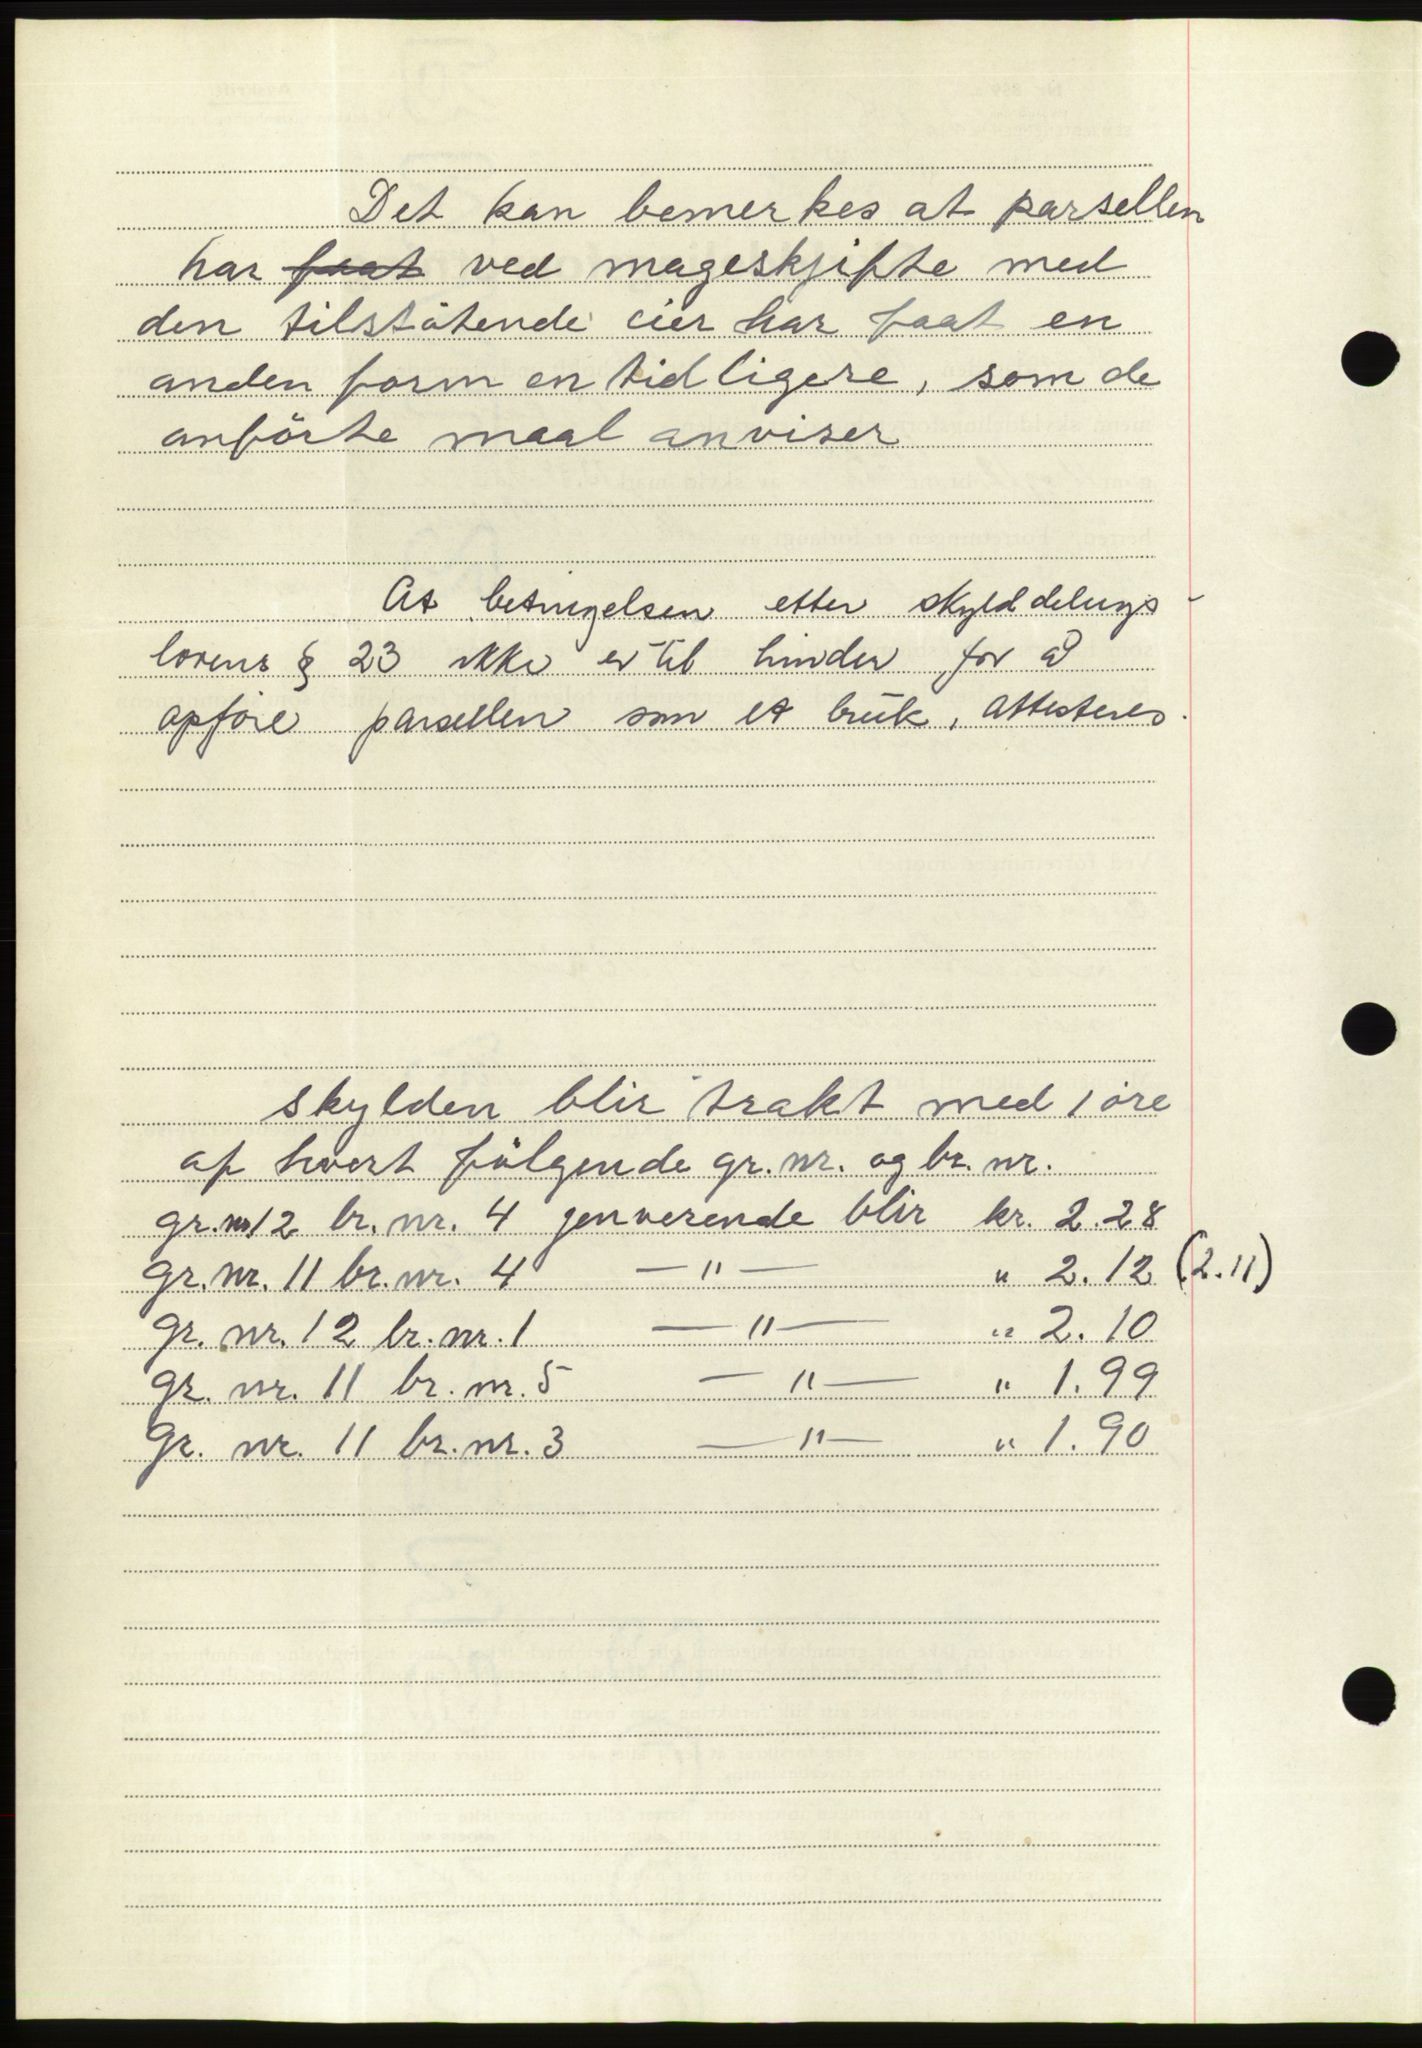 Det kan bemerkes at parsellen
har faat ved mageskjifte med
den tilstötende eier har faat en
anden form en tidligere, som de
anförte maal anviser
At betingelsen etter skylddelings-
lovens § 23 ikke er til hinder for å
opföre parsellen som et bruk, attesteres.
skylden blir trakt med 1 öre
af hvert fölgende gr. nr. og br. nr.
gr. nr 12 br. nr. 4 jenverende blir kr. 2.28
gr. nr. 11 br. nr. 4 — " — " 2.12 (2.11)
gr. nr. 12 br. nr. 1 — " — " 2.10
gr. nr. 11 br. nr. 5 — " — " 1.99
gr. nr. 11 br. nr. 3 — " — " 1.90